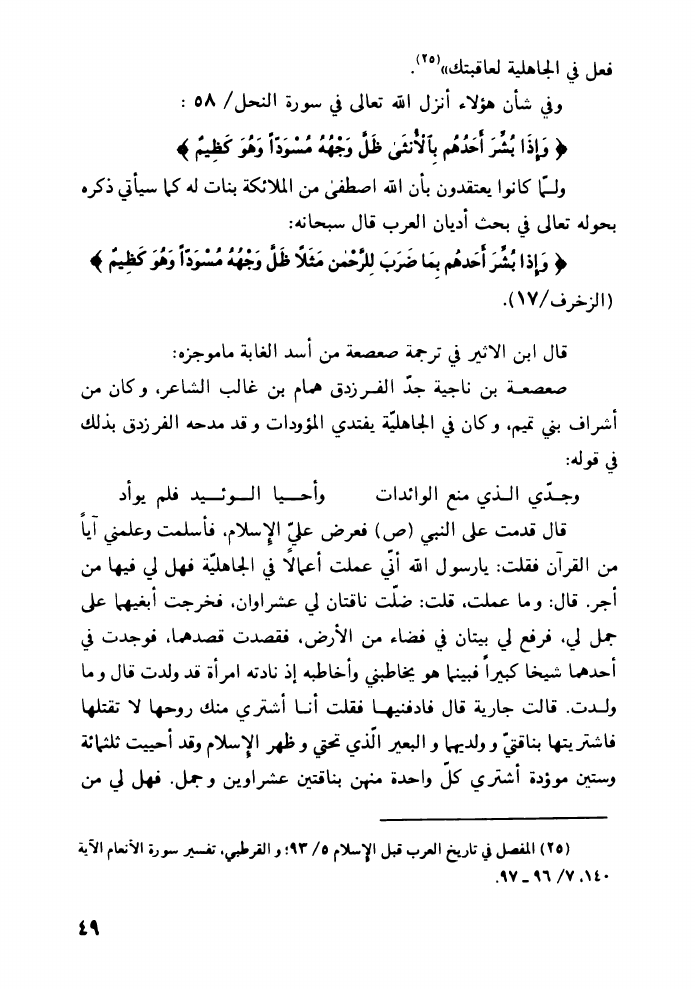 فعل في الجاهلية لعاقبتك»(٢٥).
وفي شأن هؤلاء أنزل الله تعالى في سورة النحل/ ٥٨ :
﴿ وَإِذَا بُشِّرَ أَحَدُهُم بِٱلْأُنثَىٰ ظَلَّ وَجْهُهُ مُسْوَدّاً وَهُوَ كَظِيمٌ ﴾
ولـمّا كانوا يعتقدون بأن الله اصطفىٰ من الملائكة بنات له كما سيأتي ذكره
بحوله تعالى في بحث أديان العرب قال سبحانه:
﴿ وَإِذا بُشِّرَ أَحَدهُم بِمَا ضَرَبَ لِلرَّحْمٰن مَثَلًا ظَلَّ وَجْهُهُ مُسْوَدّاً وَهُوَ كَظِيمٌ ﴾
(الزخرف/١٧).
قال ابن الاثير في ترجمة صعصعة من أسد الغابة ماموجزه:
صعصعة بن ناجية جدّ الفرزدق همام بن غالب الشاعر، وكان من
أشراف بني تميم، وكان في الجاهليّة يفتدي المؤودات وقد مدحه الفرزدق بذلك
في قوله:
وجـدّي الـذي منع الوائدات وأحـيـا الـوئـيـد فلم يوأد
قال قدمت على النبي (ص) فعرض عليّ الإسلام، فأسلمت وعلمني آياً
من القرآن فقلت: يارسول الله أنّي عملت أعمالًا في الجاهليّة فهل لي فيها من
أجر. قال: وما عملت، قلت: ضلّت ناقتان لي عشراوان، فخرجت أبغيهما على
جمل لي، فرفع لي بيتان في فضاء من الأرض، فقصدت قصدهما، فوجدت في
أحدهما شيخا كبيراً فبينما هو يخاطبني وأخاطبه إذ نادته امرأة قد ولدت قال وما
ولـدت. قالت جارية قال فادفنيهـا فقلت أنـا أشتري منك روحها لا تقتلها
فاشتريتها بناقتيّ وولديهما والبعير الّذي تحتي وظهر الإسلام وقد أحييت ثلثمائة
وستين موؤدة أشتري كلّ واحدة منهن بناقتين عشراوين وجمل. فهل لي من
(٢٥) المفصل في تاريخ العرب قبل الإسلام ٥/ ٩٣؛ والقرطبي، تفسير سورة الأنعام الآية
١٤٠، ٧/ ٩٦ ـ ٩٧.
٤٩